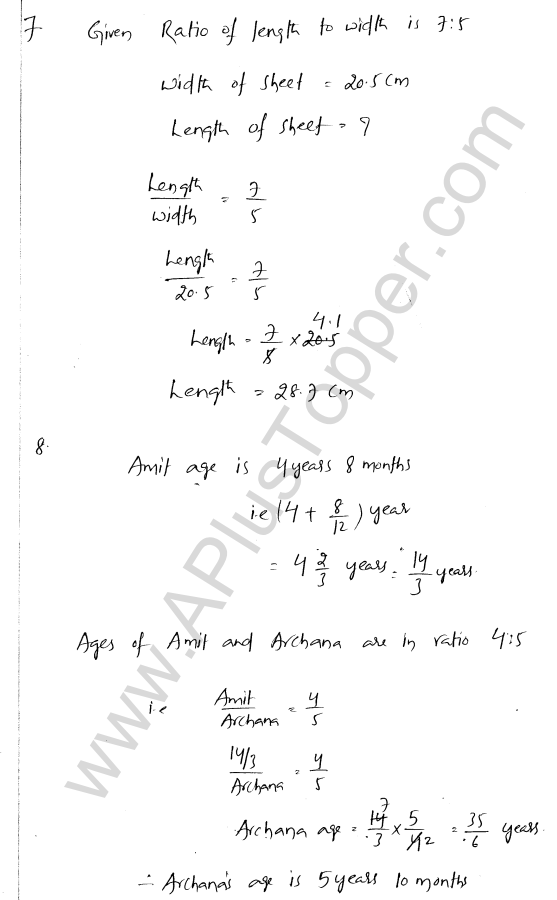 7 Given Ratio of length to width is 7:5
width of sheet = 20.5 cm
Length of sheet = ?
Length/width = 7/5
Length/20.5 = 7/5
4.1
Length = 7/5 × 20.5
Length = 28.7 cm
8.
Amit age is 4 years 8 months
i.e (4 + 8/12) year
= 4 2/3 years = 14/3 years
Ages of Amit and Archana are in ratio 4:5
i.e Amit/Archana = 4/5
14/3/Archana = 4/5
7
Archana age = 14/3 × 5/4 2 = 35/6 years
∴ Archana's age is 5 years 10 months
www.APlusTopper.com